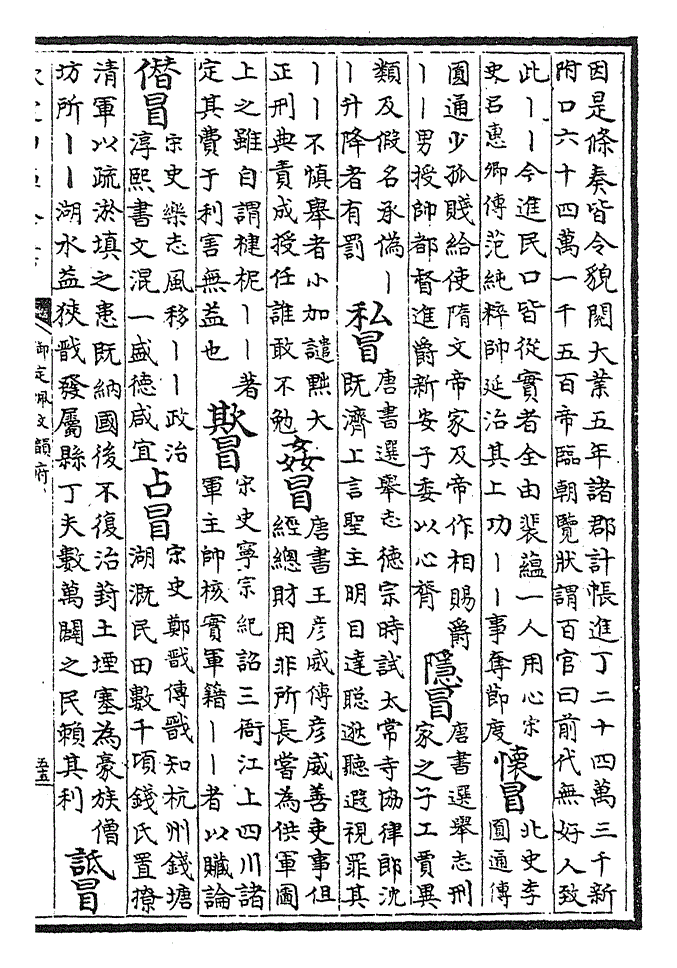 因是條奏皆令貌閱大業五年諸郡計帳進丁二十四萬三千新
附口六十四萬一千五百帝臨朝覽狀謂百官曰前代無好人致
此丨丨今進民口皆從實者全由裴蘊一人用心宋
史呂惠卿傳范純粹師延治其上功丨丨事奪節度
懷冒
北史李
圓通傳
圓通少孤賤給使隋文帝家及帝作相賜爵
丨丨男授帥都督進爵新安子委以心膂
隱冒
唐書選舉志刑
家之子工賈異
類及假名承偽丨
丨升降者有罰
私冒
唐書選舉志德宗時試太常寺協律郎沈
既濟上言聖主明目達聰逖聽遐視罪其
丨丨不慎舉者小加譴黜大
正刑典責成授任誰敢不勉
姦冒
唐書王彥威傳彥威善吏事但
經總財用非所長嘗為供軍圖
上之雖自謂楗柅丨丨著
定其費于利害無益也
欺冒
宋史寧宗紀詔三衙江上四川諸
軍主帥核實軍籍丨丨者以贓論
僭冒
宋史樂志風移丨丨政治
淳熙書文混一盛德咸宜
占冒
宋史鄭戩傳戩知杭州錢塘
湖溉民田數千頃錢氏置撩
清軍以疏淤填之患既納國後不復治葑土堙塞為豪族僧
坊所丨丨湖水益狹戩發屬縣丁夫數萬闢之民賴其利
詆冒
御定佩文韻府